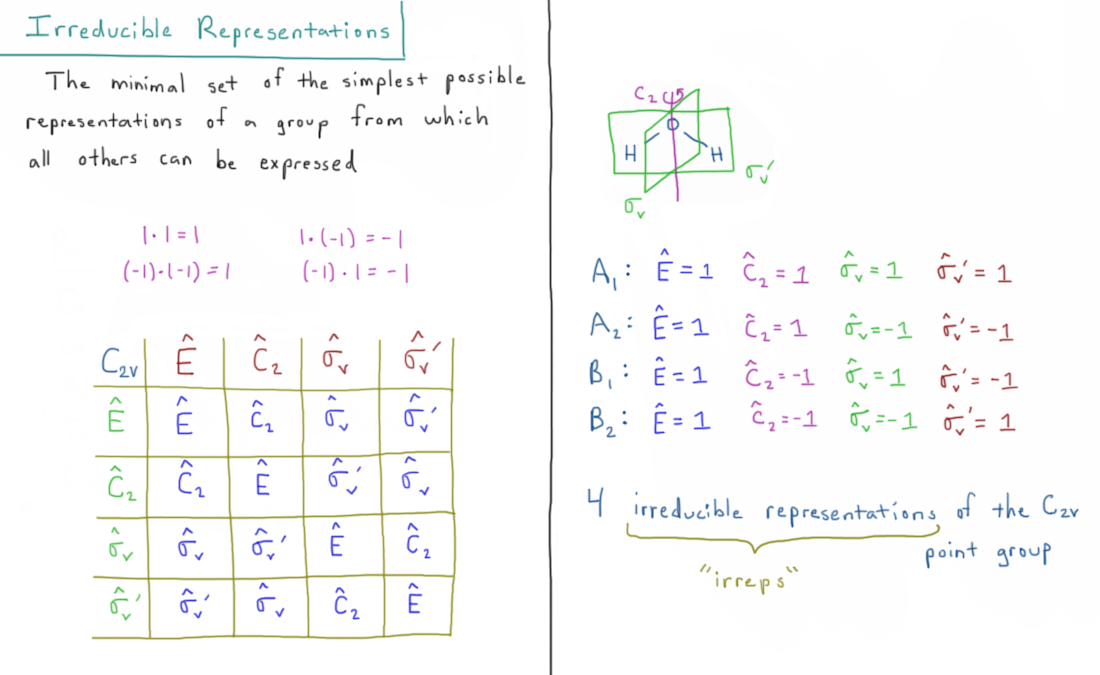 Irreducible Representations
The minimal set of the simplest possible
representations of a group from which
all others can be expressed
1·1=1 1·(-1)=-1
(-1)·(-1)=1 (-1)·1=-1
C₂ᵥ Ê Ĉ₂ σ̂ᵥ σ̂ᵥ′
Ê Ê Ĉ₂ σ̂ᵥ σ̂ᵥ′
Ĉ₂ Ĉ₂ Ê σ̂ᵥ′ σ̂ᵥ
σ̂ᵥ σ̂ᵥ σ̂ᵥ′ Ê Ĉ₂
σ̂ᵥ′ σ̂ᵥ′ σ̂ᵥ Ĉ₂ Ê
C₂
O
H H
σᵥ′
σᵥ
A₁: Ê=1 Ĉ₂=1 σ̂ᵥ=1 σ̂ᵥ′=1
A₂: Ê=1 Ĉ₂=1 σ̂ᵥ=-1 σ̂ᵥ′=-1
B₁: Ê=1 Ĉ₂=-1 σ̂ᵥ=1 σ̂ᵥ′=-1
B₂: Ê=1 Ĉ₂=-1 σ̂ᵥ=-1 σ̂ᵥ′=1
4 irreducible representations of the C₂ᵥ
point group
"irreps"